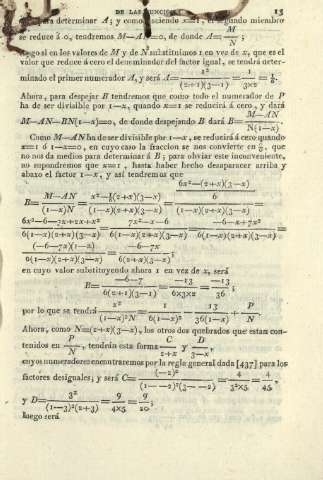 DE LAS FUNCIONES 15
para determinar A; y como haciendo x=1, el segundo miembro
se reduce á 0, tendremos M—AN=0, de donde A=M/N;
luego si en los valores de M y de N substituimos 1 en vez de x, que es el
valor que reduce á cero el denominador del factor igual, se tendrá deter-
minado el primer numerador A, y será A=1²/((2+1)(3—1))=1/(3×2)=1/6.
Ahora, para despejar B tendremos que como todo el numerador de P
ha de ser divisible por 1—x, quando x=1 se reducirá á cero, y dará
M—AN—BN(1—x)=0, de donde despejando B dará B=(M—AN)/(N(1—x))
Como M—AN ha de ser divisible por 1—x, se reducirá á cero quando
x=1 ó 1—x=0, en cuyo caso la fraccion se nos convierte en 0/0, que
no nos da medios para determinar á B; para obviar este inconveniente,
no supondremos que x=1, hasta haber hecho desaparecer arriba y
abaxo el factor 1—x, y así tendremos que
B=(M—AN)/((1—x)N)=(x²—1/6(2+x)(3—x))/((1—x)(2+x)(3—x))=((6x²—(2+x)(3—x))/6)/((1—x)(2+x)(3—x))=
(6x²—6—7x+2x+x²)/(6(1—x)(2+x)(3—x))=(7x²—x—6)/(6(1—x)(2+x)(3—x))=(—6—x+7x²)/(6(1—x)(2+x)(3—x))=
((—6—7x)(1—x))/(6(1—x)(2+x)(3—x))=(—6—7x)/(6(2+x)(3—x));
en cuyo valor substituyendo ahora 1 en vez de x, será
B=(—6—7)/(6(2+1)(3—1))=—13/(6×3×2)=—13/36;
por lo que se tendrá x²/((1—x)²N)=1/(6(1—x)²)—13/(36(1—x))+P/N
Ahora, como N=(2+x)(3—x), los otros dos quebrados que estan con-
tenidos en P/N, tendrán esta forma C/(2+x) y D/(3—x),
cuyos numeradores encontraremos por la regla general dada [437] para los
factores desiguales; y será C=(—2)²/((1— —2)²(3— —2))=4/(3²×5)=4/45,
y D=3²/((1—3)²(2+3))=9/(4×5)=9/20;
luego será